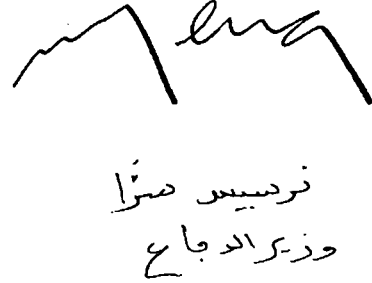 نرسيس سرّا
وزير الدفاع